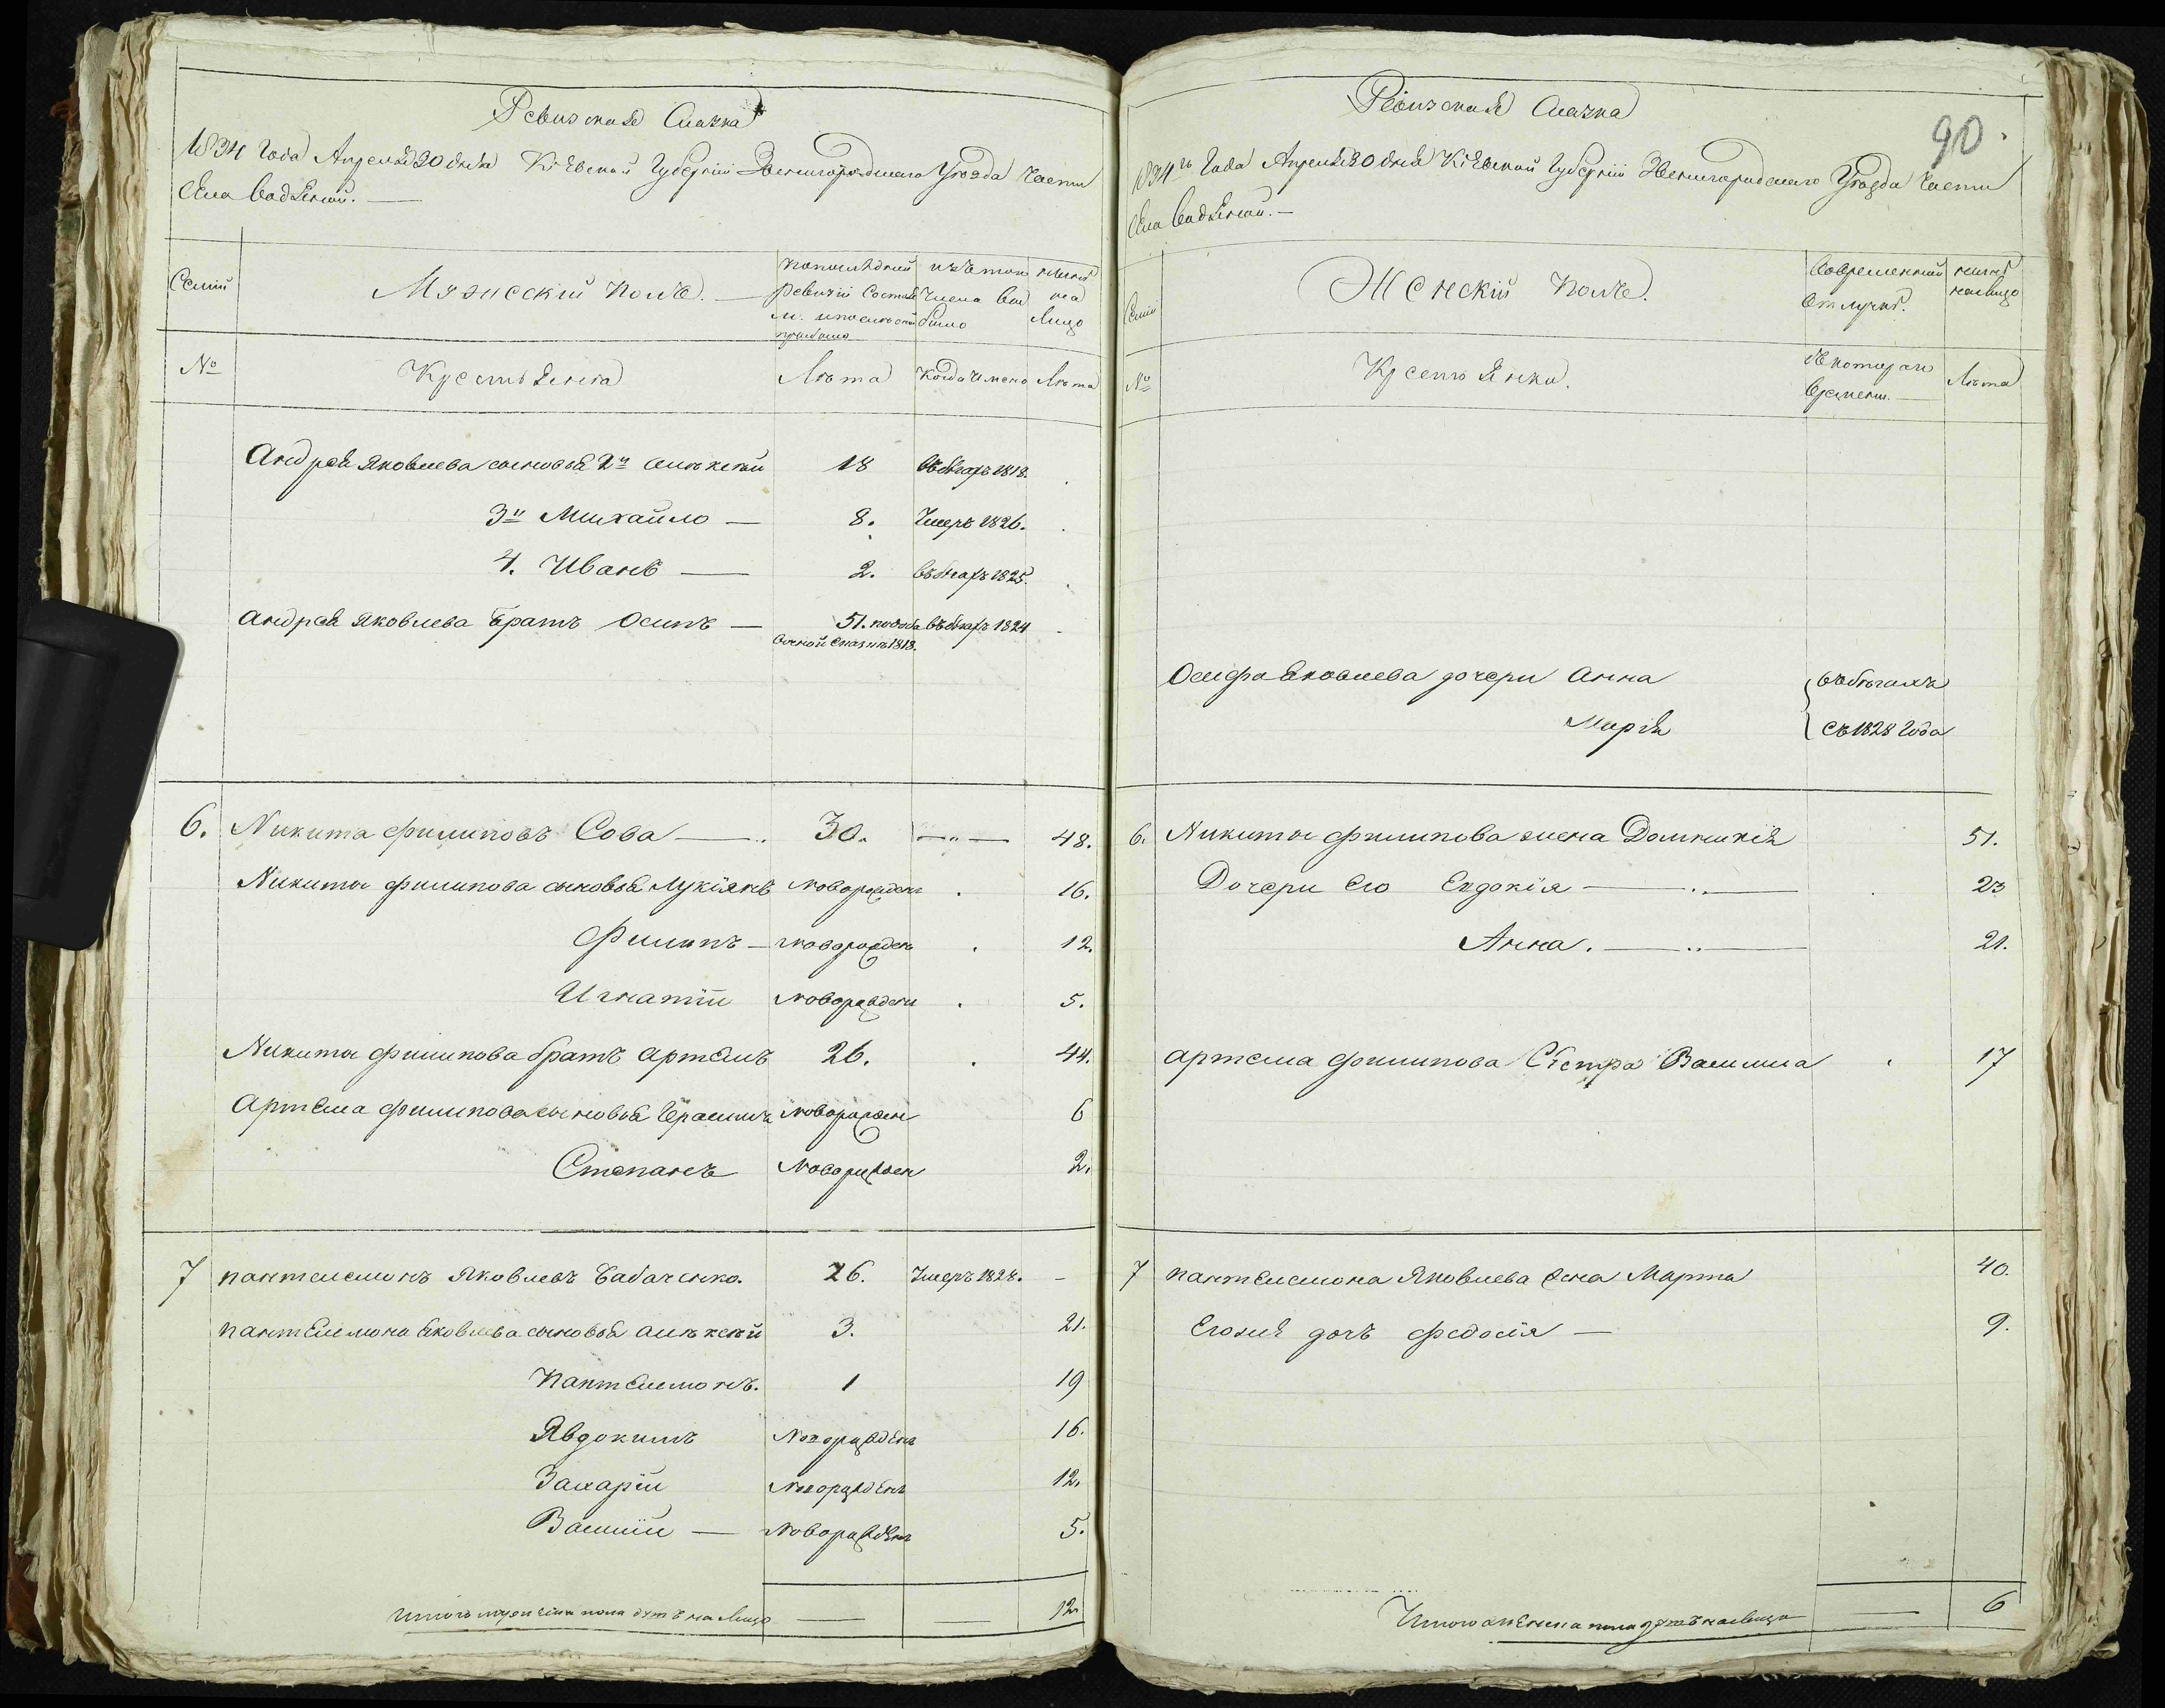 Ревизская Сказка
1834 Года Апреля 20 дня Кіевской Губерніи Звенигородскаго Уезда части
Села Водяной. —
Семіи
Мужескій полъ. —
По последней
ревизіи Состояло
и после оной
прибыло
изъ того
Числа вы
было
ныне
на
Лицо
№
Крестьяне
Лета
Когда имено
Лета
Андрея Яковлева сыновья 2й Алексей 18 въ бегахъ 1818.
3й Михайло — 8. Умеръ 1826.
4. Иванъ — 2. въ бегахъ 1825.
Андрея Яковлева братъ Осипъ — 51. по доба въ бегахъ 1824
вочной сказке 1818.
6. Никита Филиповъ Сова — 30. —"— 48.
Никиты Филипова сыновья Лукіянъ новорожденъ . 16.
Филипъ — новорожденъ . 12.
Игнатій новорожденъ . 5.
Никиты Филипова братъ Артемъ 26. . 44.
Артема Филипова сыновья Герасимъ новорожден 6
Степанъ новорожден 2.
7 Пантелемонъ Яковлевъ Бабаченко. 26. Умеръ 1828. —
Пантелемона Яковлева сыновья Алексей 3. 21.
Пантелемонъ. 1 19
Явдокимъ Новорожденъ 16.
Захарій Новорожденъ 12.
Василій — Новорожденъ 5.
Итого мужеска пола душъ на лицо — — 12.
90.
Ревизская Сказка
1834го Года Апреля 20 дня Кіевской Губерніи Звенигородскаго Уезда части
Села Водяной. —
Семіи
Женскій Полъ.
Во временной
отлучке.
ныне
на лицо
№
Крестьянки.
Съ котораго
времени. —
Лета
Осифа Яковлева дочери Анна въ бегахъ
Марія съ 1828 Года
6. Никиты Филипова жена Домникія 51.
Дочери Его Евдокія — 23
Анна. — 21.
Артема Филипова Сестра Василиса 17
7 Пантелемона Яковлева жена Марта 40.
Его же дочъ Федосія — 9.
Итого женска пола душъ на лицо — 6